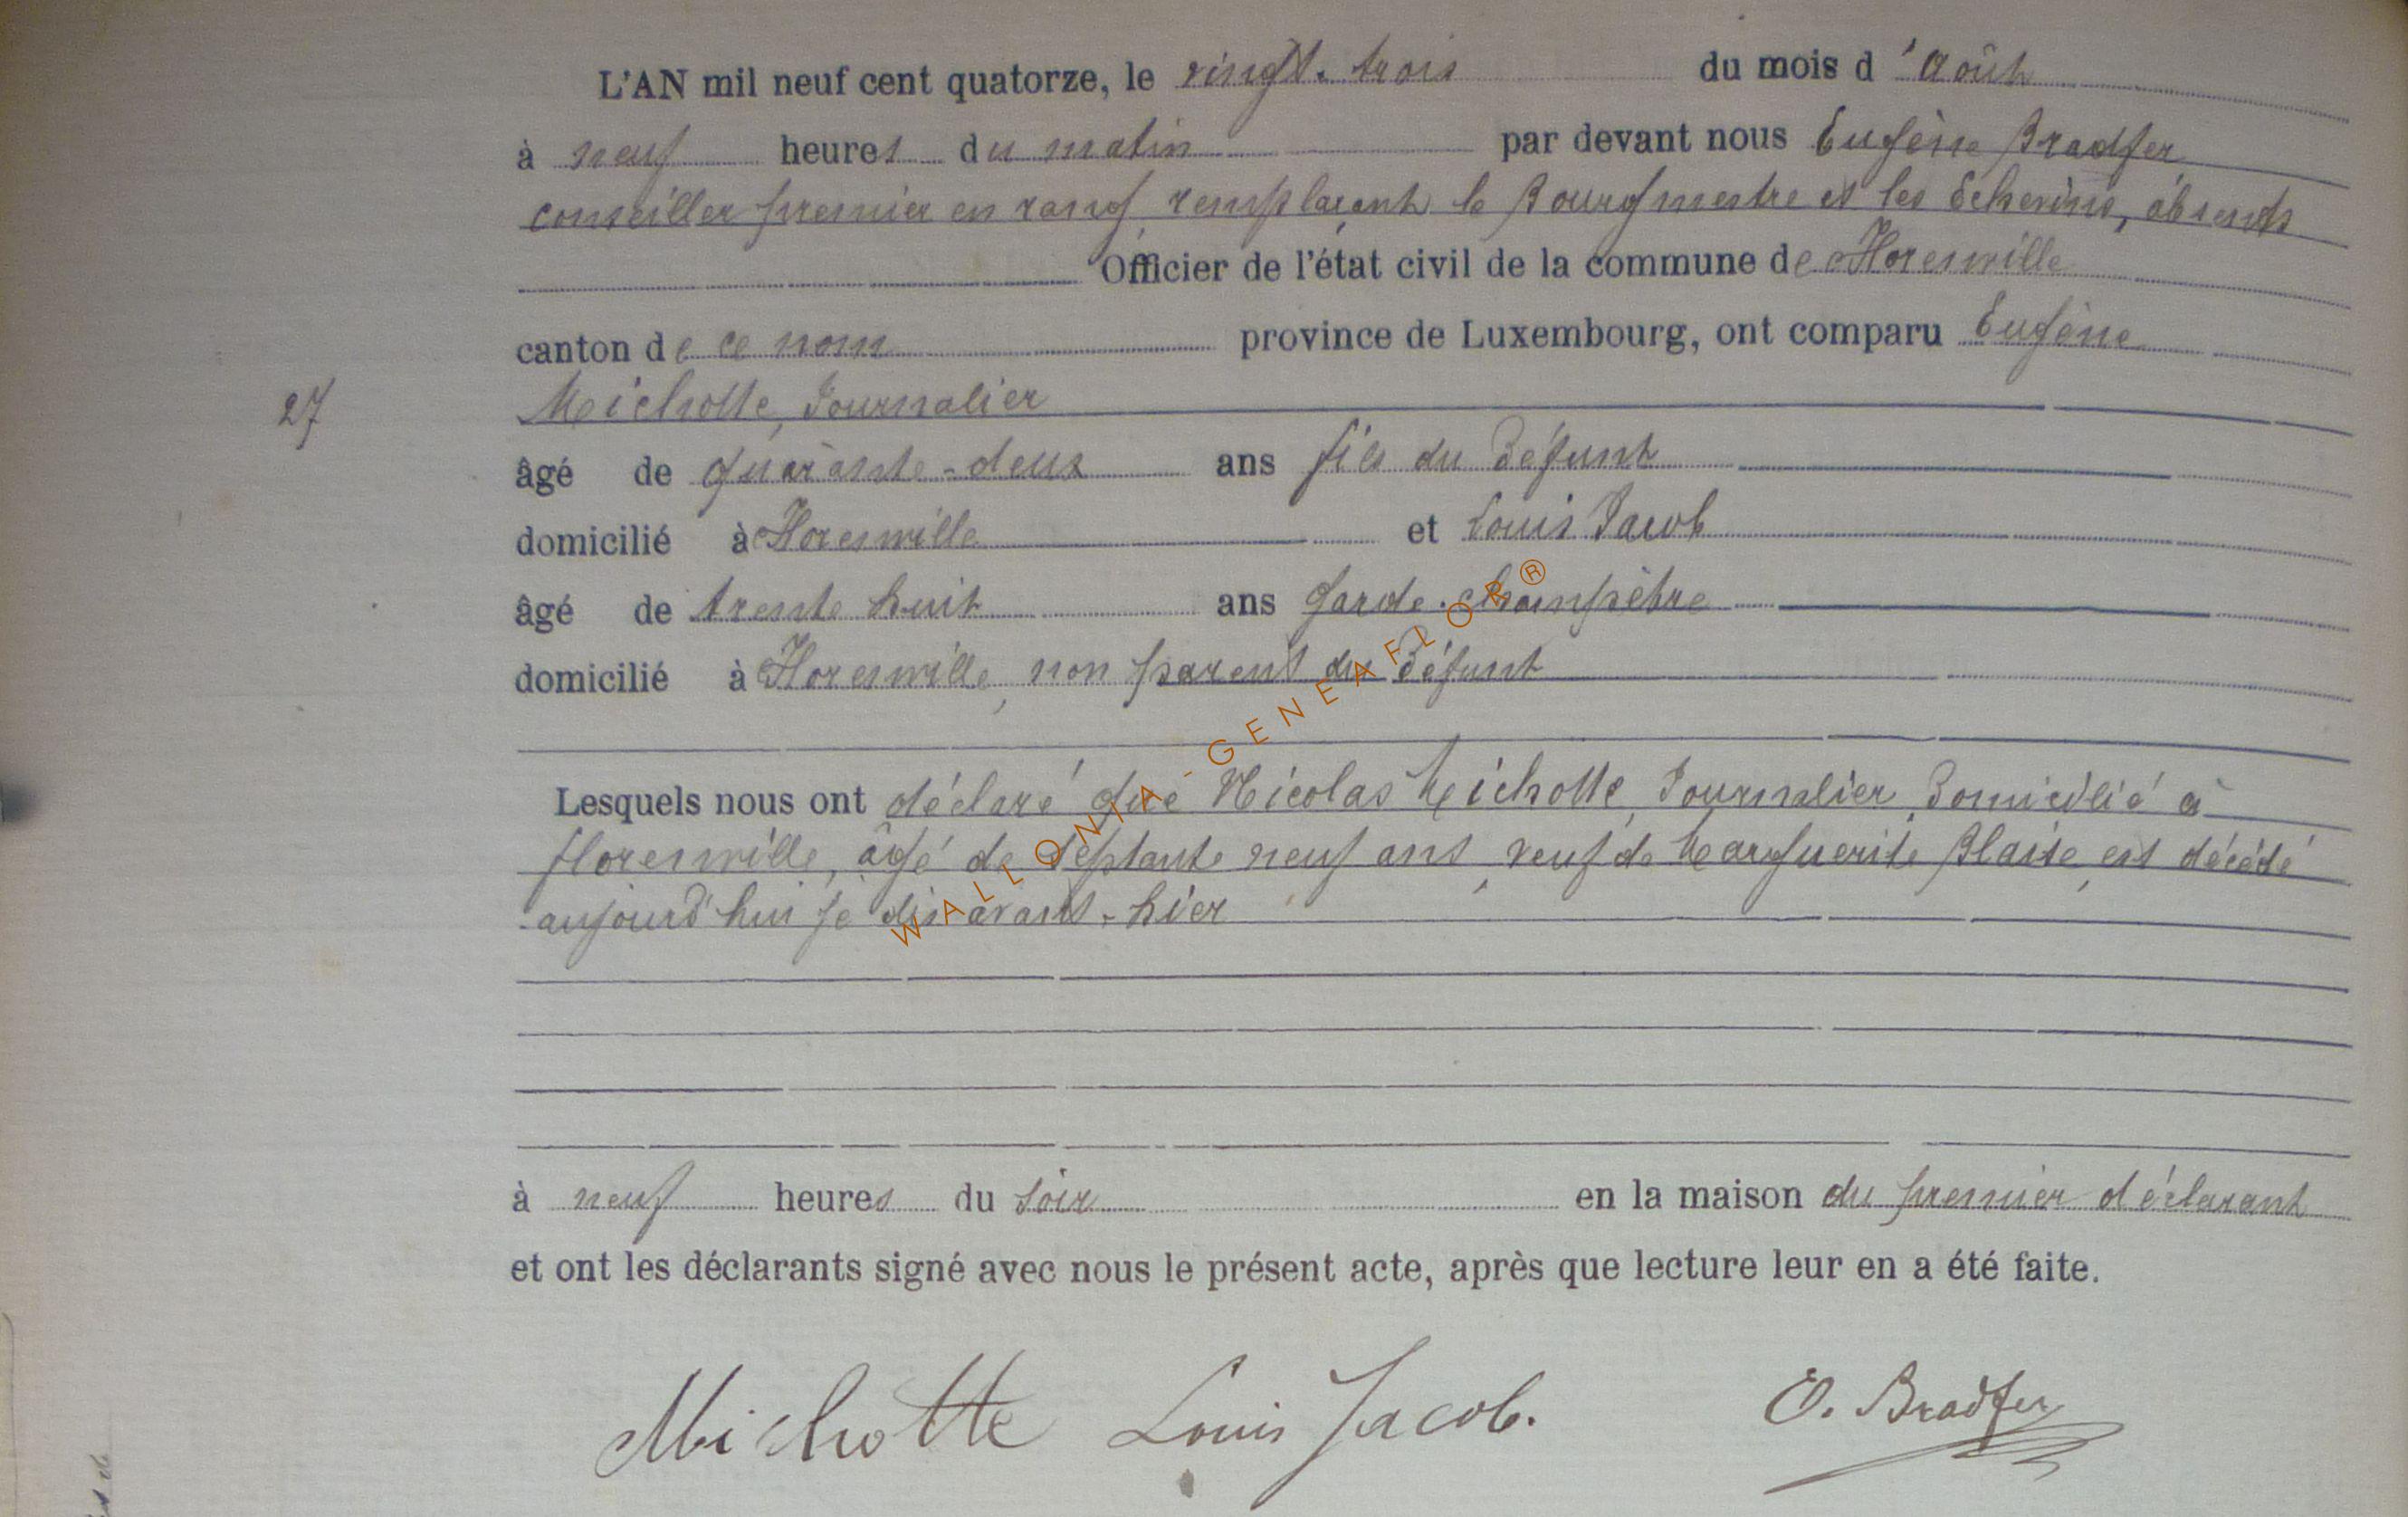 L'AN mil neuf cent quatorze, le vingt-trois du mois d'Août
à neuf heures du matin par devant nous Eugène Bradfer,
conseiller premier en rang, remplaçant le Bourgmestre et les Echevins, absents
Officier de l'état civil de la commune de Florenville
canton de ce nom province de Luxembourg, ont comparu Eugène
27 Michotte, Journalier
âgé de quarante-deux ans fils du Défunt
domicilié à Florenville et Louis Jacob
âgé de trente huit ans garde-champêtre
domicilié à Florenville, non parent du Défunt
Lesquels nous ont déclaré que Nicolas Michotte, Journalier, Domicilié à
florenville, âgé de septante neuf ans, veuf de Marguerite Blaise, est décédé
aujourd'hui je dis avant-hier
à neuf heures du soir en la maison du premier déclarant
et ont les déclarants signé avec nous le présent acte, après que lecture leur en a été faite.
Michotte Louis Jacob. E. Bradfer
WALLONIA-GENEAFLOR ®